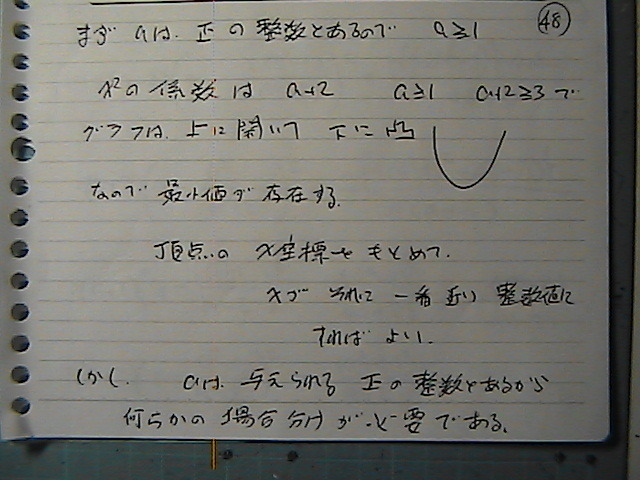 まず aは、正の整数とあるので a≧1 48
x²の係数は a+2 a≧1 a+2≧3で
グラフは、上に開いて 下に凸
なので 最小値が存在する.
頂点の x座標をもとめて.
xが それに 一番近い 整数値に
すればよい.
しかし. aは、与えられる 正の整数とあるから
何らかの場合分けが必要である.